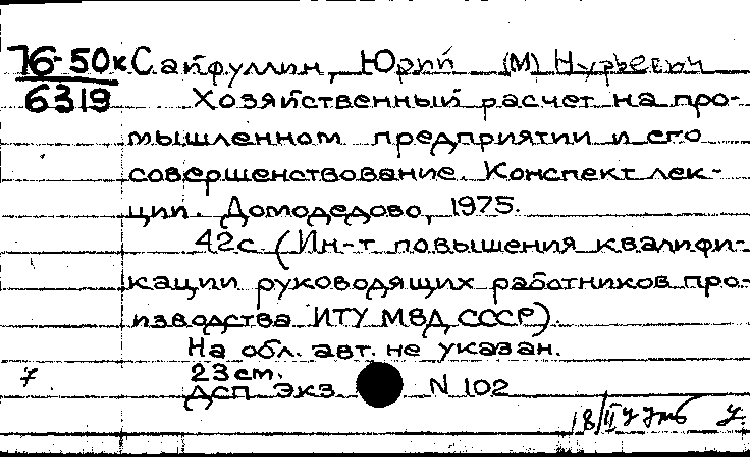 76-50к Сайфуллин, Юрий (М) Нурьевич
6319 Хозяйственный расчет на про-
мышленном предприятии и его
совершенствование. Конспект лек-
ции. Домодедово, 1975.
42с. (Ин-т повышения квалифи-
кации руководящих работников про-
изводства ИТУ МВД СССР).
На обл. авт. не указан.
7 23 ст.
ДСП экз N 102
18/II